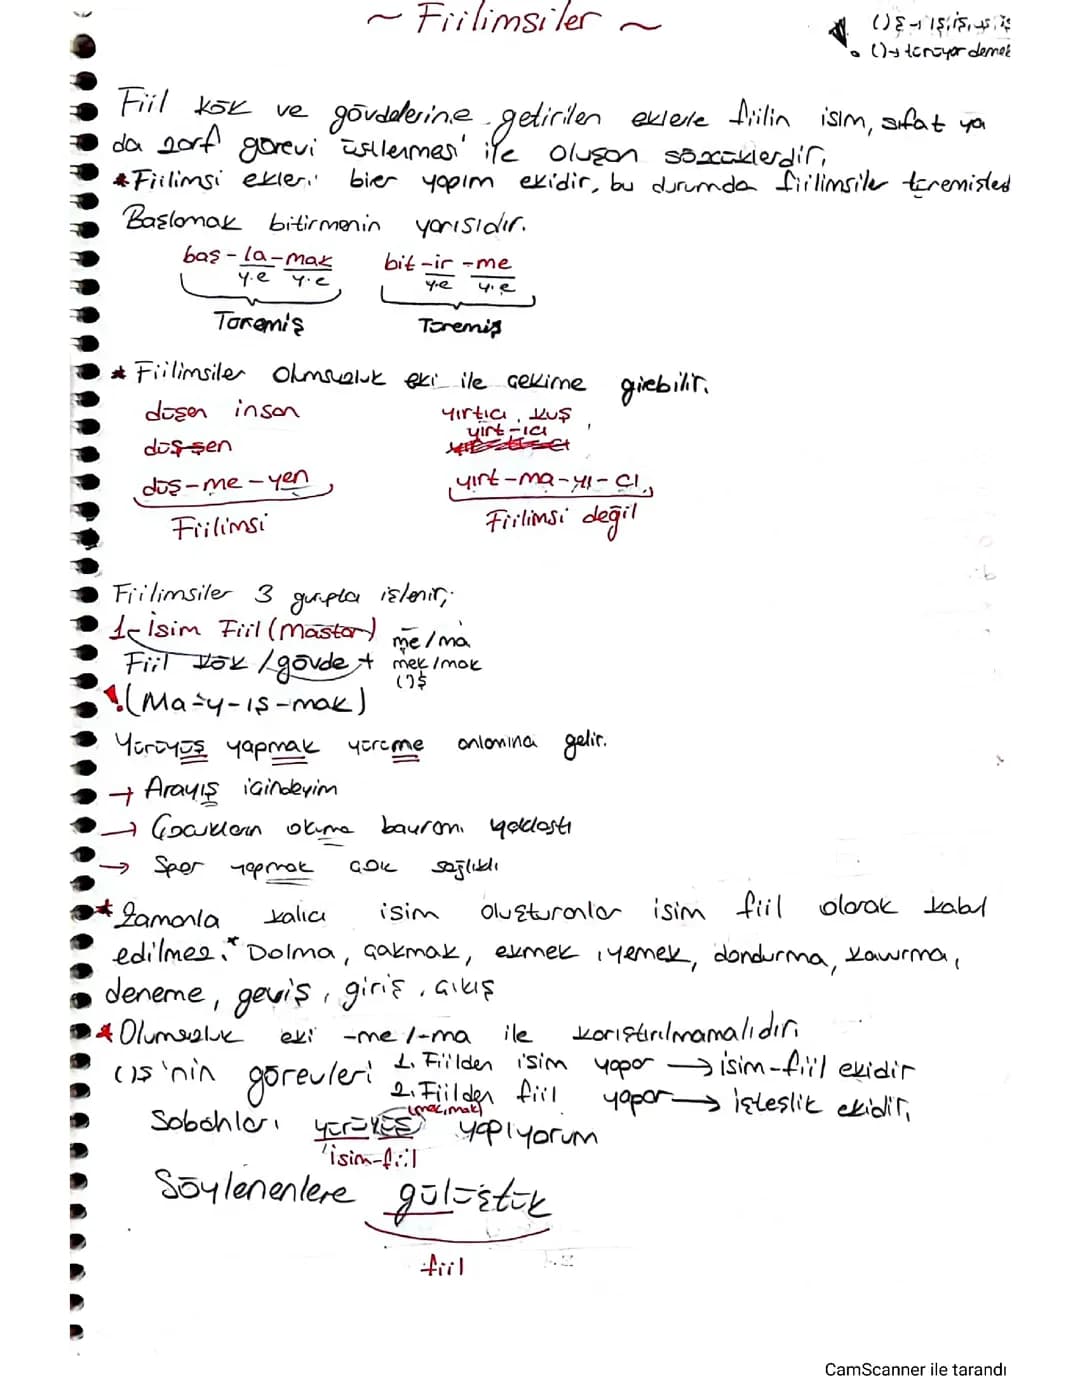 ~ Fiilimsiler ~
()ş → ış, iş, uş, üş
()→ türüyor demek
Fiil kök ve gövdelerine getirilen eklerle fiilin isim, sıfat ya
da zarf görevi üstlenmesi ile oluşan sözcüklerdir.
* Fiilimsi ekleri birer yapım ekidir, bu durumda fiilimsiler türemişted
Başlamak bitirmenin yarısıdır.
baş-la-mak bit-ir-me
y.e y.e y.e y.e
Türemiş Türemiş
* Fiilimsiler olumsuzluk eki ile çekime girebilir.
düşen insan yırtıcı kuş
düş-şen yırt-ıcı
düş-me-yen yırt-ma-yı-cı
Fiilimsi Fiilimsi değil
Fiilimsiler 3 gurupta işlenir;
1- İsim Fiil (Mastar) me/ma
Fiil kök/gövde + mek/mak
()ş
! (Ma-y-ış-mak)
Yürüyüş yapmak yürüme anlamına gelir.
→ Arayış içindeyim
→ Çocukların okuma bayramı yaklaştı
→ Spor yapmak çok sağlıklı
* Zamanla kalıcı isim oluşturanlar isim fiil olarak kabul
edilmez. * Dolma, çakmak, ekmek, yemek, dondurma, kavurma,
deneme, geviş, giriş, çıkış
* Olumsuzluk eki -me/-ma ile karıştırılmamalıdır.
()ş'nin görevleri 1. Fiilden isim yapar → isim-fiil ekidir
2. Fiilden fiil yapar → işteşlik ekidir.
(mek, mak)
Sabahları yürüyüş yapıyorum
isim-fiil
Söylenenlere gülüştük
fiil
CamScanner ile tarandı